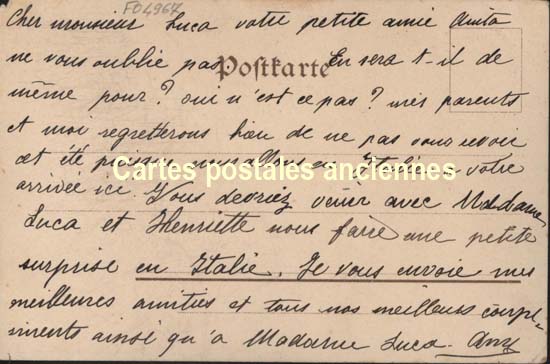 FO4967
Cher monsieur Luca votre petite amie Anita
ne vous oublie pas. En sera t-il de
Postkarte
même pour? oui n'est ce pas? mes parents
et moi regretterons bien de ne pas vous revoir
cet été puisque nous allons en Italie à votre
Cartes postales anciennes
arrivée ici. Vous devriez venir avec Madame
Luca et Henriette nous faire une petite
surprise en Italie. Je vous envoie mes
meilleures amitiés et tous nos meilleurs compli-
ments ainsi qu'à Madame Luca.